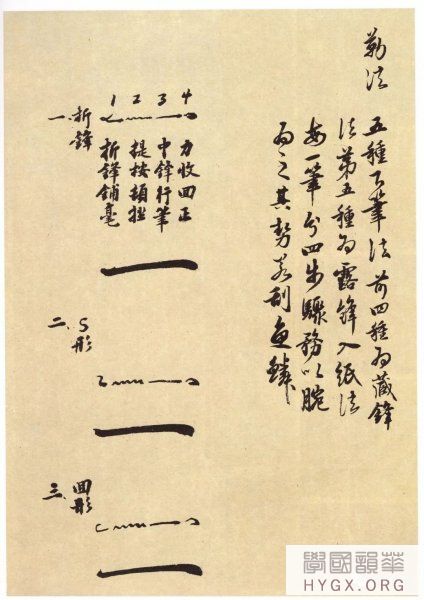 勒法
五種下筆法前四種为藏鋒
法第五種为露鋒入紙法
每一筆分四步驟務以腕
为之其势若刮魚鱗
一、折鋒
1 2 3 4
力收回正
中鋒行筆
提按頓挫
折鋒鋪毫
二、S形
三、回形
學國韻華
HYGX.ORG